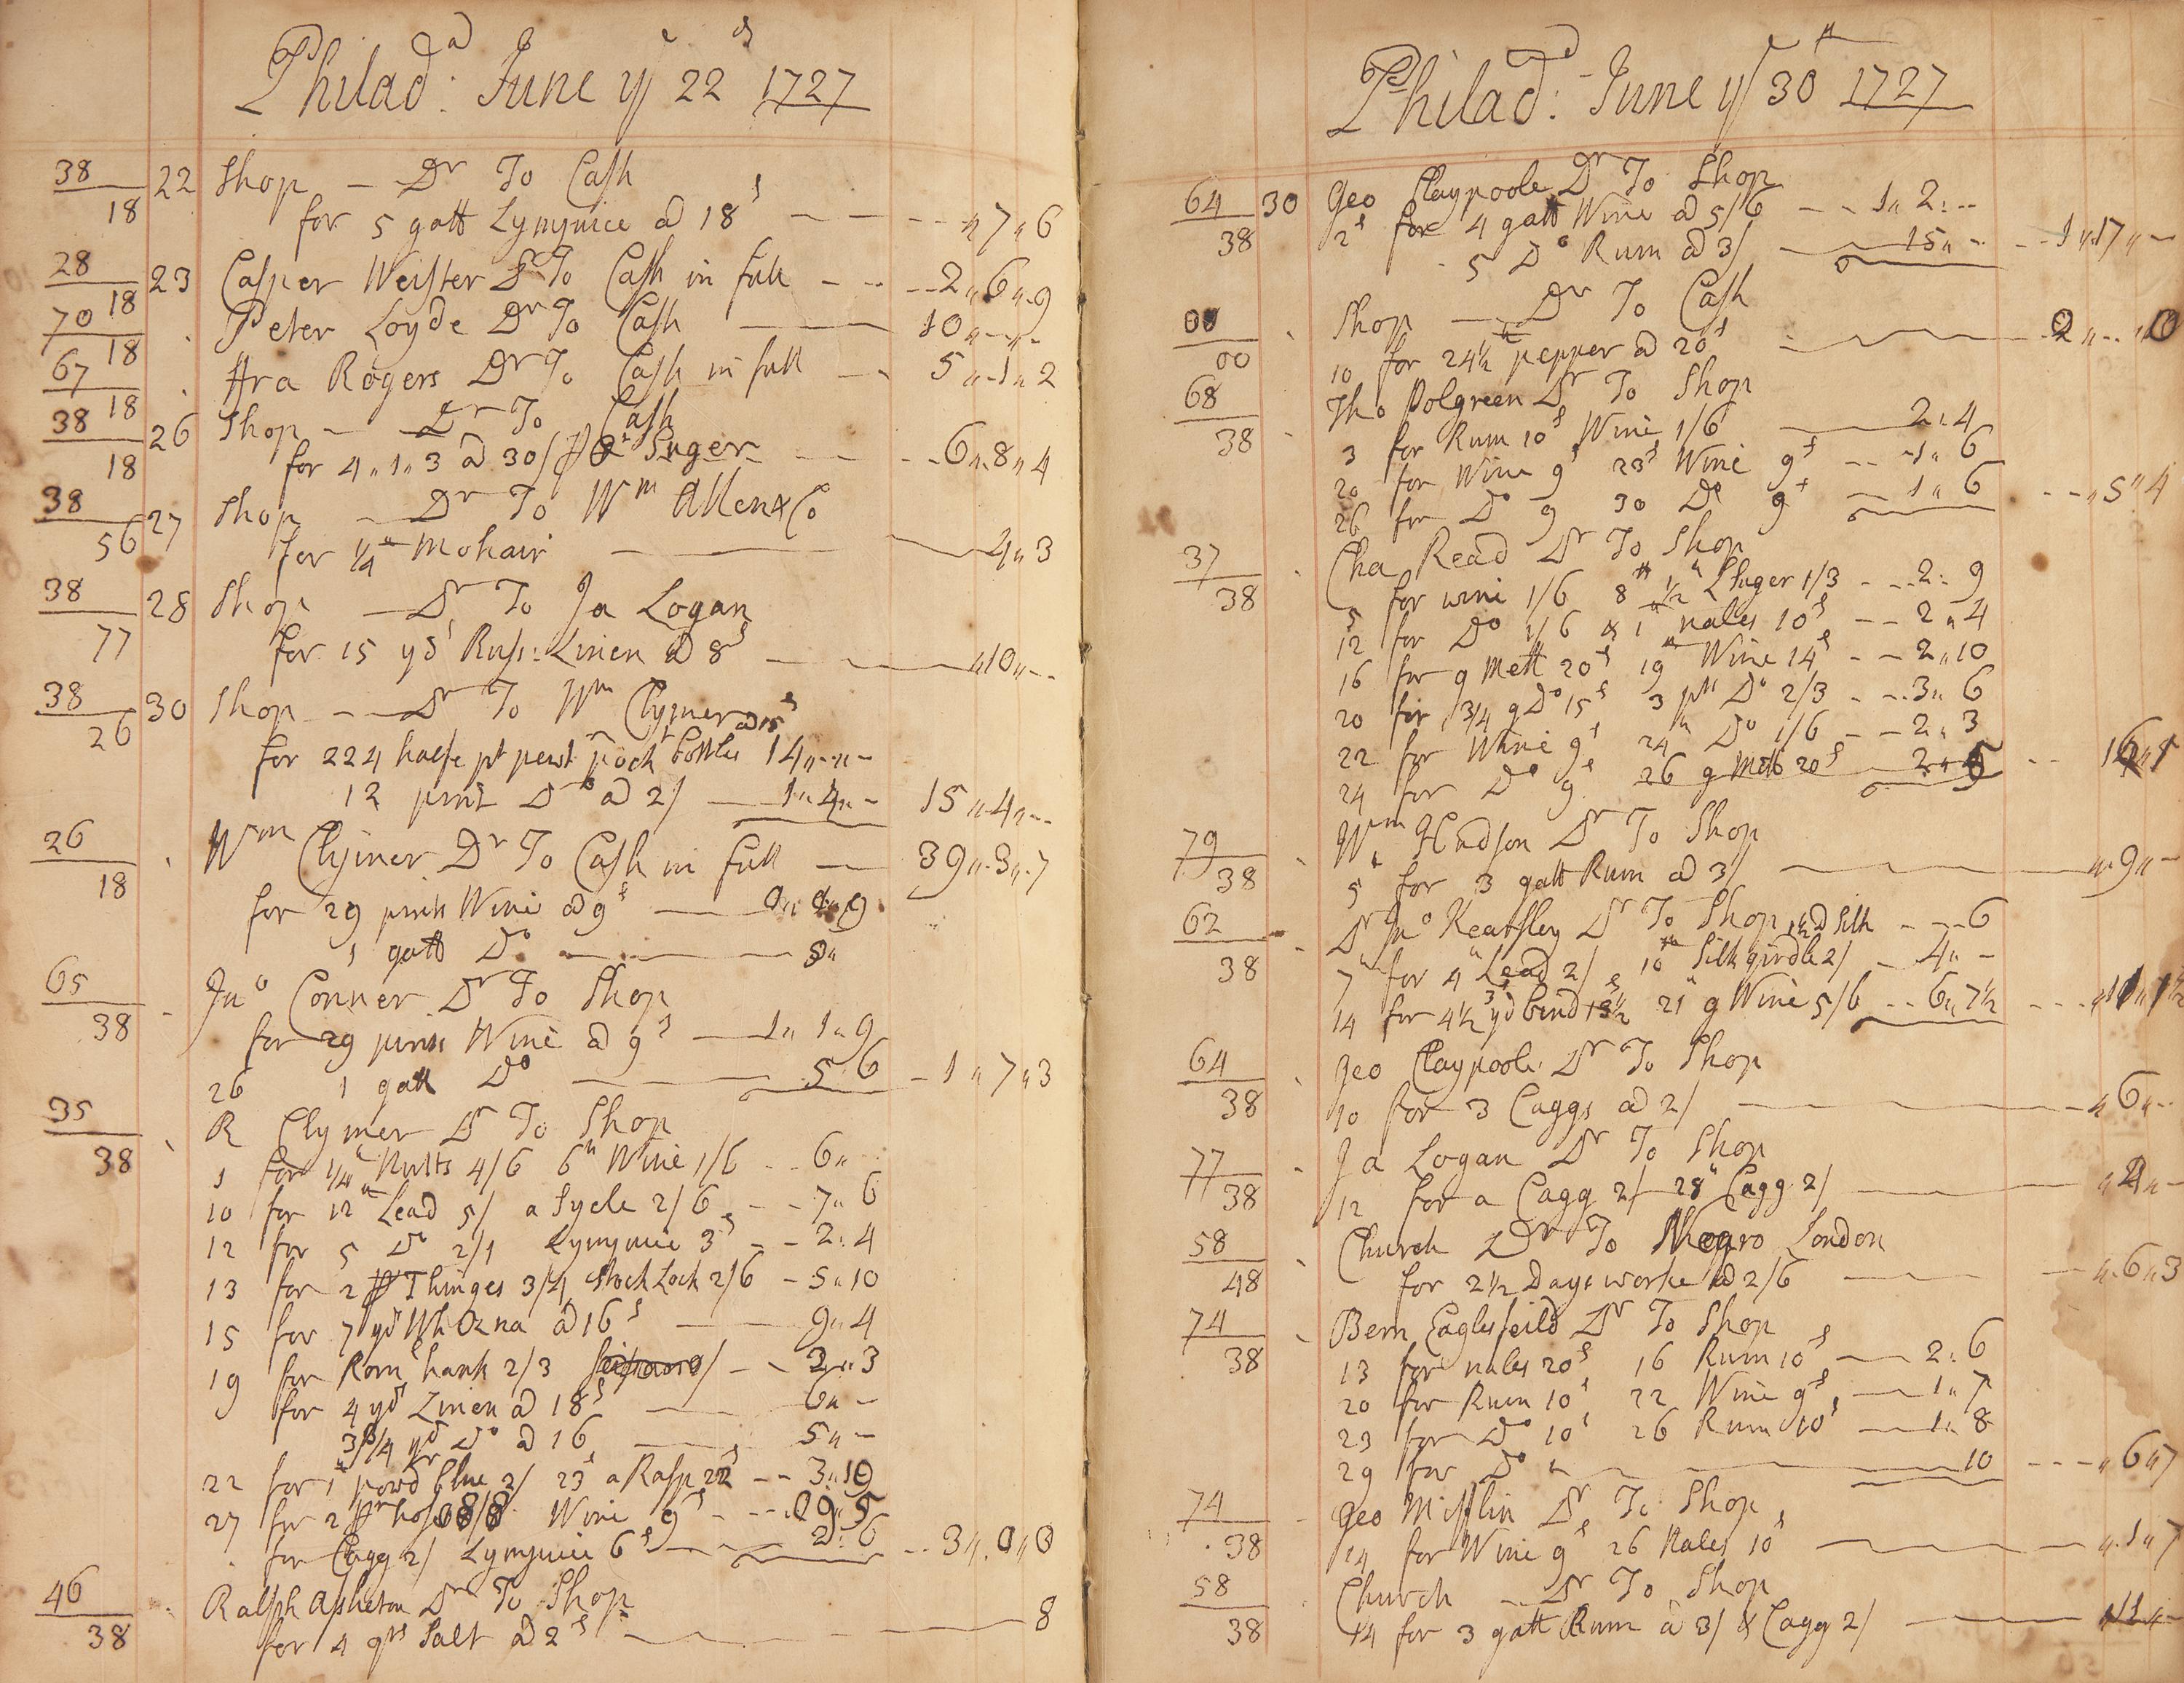 Philad^d: June y^e 22^d 1727
38/18 22 Shop — Dr To Cash
for 5 gall Lymjuice @ 18^d — — — "7"6
28/18 23 Casper Weister Dr To Cash in full — — — 2"6"9
70/18 Peter Loyde Dr To Cash — 10"-"-
67/18 Ara Rogers Dr To Cash in full — 5"1"2
38/18 26 Shop — Dr To Cash
for 4"1"3 @ 30/ Suger — — 6"8"4
38/56 27 Shop — Dr To Wm Allen & Co
for 1/4 Mohair — 4"3
38/77 28 Shop — Dr To Ja Logan
for 15 yds Russ: Linen @ 8^d — "10"-
38/26 30 Shop — Dr To Wm Clymer
for 224 halfe pt pewt pock bottles @ 15^d 14"-"-
12 pint Do @ 2/ — 1"4"- 15"4"-
26/18 Wm Clymer Dr To Cash in full — 39"3"7
for 29 pints Wine @ 9^d —
1 gall Do. —
65/38 Jno Conner Dr To Shop
for 29 pints Wine @ 9^d — 1"1"9
26 1 gall Do — 5"6 — 1"7"3
35/38 R Clymer Dr To Shop
1 for 1/4 Nutts 4/6 6th Wine 1/6 — 6"
10 for 12 Lead 5/ a Sycle 2/6 — 7"6
12 for 5 Do 2/1 Lymjuice 3^d — 2:4
13 for 2 pr Thinges 3/4 Stock Lock 2/6 — 5"10
15 for 7 yds Wh Ozna @ 16^d — 9"4
19 for Rom hank 2/3 — 2"3
for 4 yds Linen @ 18^d — 6"-
3 3/4 yd Do @ 16 — 5"-
22 for 1 powd blue 2/ 23 a Rasp 22^d — 3"10
27 for 2 pr hose Wine 9^d —
for Cagg 2/ Lymjuice 6^d — 2:6 — 3"0"0
46/38 Ralph Asheton Dr To Shop
for 4 qts Salt @ 2^d — 8
Philad^d: June y^e 30^th 1727
64/38 30 Geo Claypoole Dr To Shop
2^d for 4 gall Wine @ 5/6 — — 1"2:-
5 Do Rum @ 3/ — 15"- — 1"17"-
00/00 Shop — Dr To Cash
10 for 24 1/2 pepper @ 20^d — 2"-"10
68/38 Tho Polgreen Dr To Shop
3 for Rum 10^d Wine 1/6 — 2:4
20 for Wine 9^d 23^d Wine 9^d — 1"6
26 for Do 9 30 Do 9^d — 1"6 — "5"4
37/38 Cha Read Dr To Shop
5 for wine 1/6 8th 1/2 LSuger 1/3 — 2:9
12 for Do 1/6 & 1 nales 10^d — 2"4
16 for g Mett 20^d 19th Wine 14^d — 2"10
20 for 3/4 g Do 15^d 3 pts Do 2/3 — 3"6
22 for Wine 9^d 24th Do 1/6 — 2"3
24 for Do 9^d 26 g Mett 20^d 2"5 —
79/38 Wm Hudson Dr To Shop
5 for 3 gall Rum @ 3/ — "9"-
62/38 Dr Jno Kearsley Dr To Shop 1/2 d Silk — 6
7 for 4 Lead 2/ 10th Silk girdle 2/ — 4"-
14 for 4 1/2 yd bind 21 g Wine 5/6 — 6"7 1/2 — "11"1 1/2
64/38 Geo Claypoole Dr To Shop
10 for 3 Caggs @ 2/ — "6"-
77/38 Ja Logan Dr To Shop
12 for a Cagg 2/ 28 Cagg 2/ — "4"-
58/48 Church Dr To Negro London
for 2 1/2 Days worke @ 2/6 — "6"3
74/38 Benn Eaglesfeild Dr To Shop
13 for nales 20^d 16 Rum 10^d — 2:6
20 for Rum 10^d 22 Wine 9^d — 1"7
23 for Do 10^d 26 Rum 10^d — 1:8
29 for Do — 10 — "6"7
74/38 Geo Mifflin Dr To Shop
14 for Wine 9^d 26 Nales 10^d — "1"7
58/38 Church — Dr To Shop
14 for 3 gall Rum @ 3/ & Cagg 2/ — "11"-